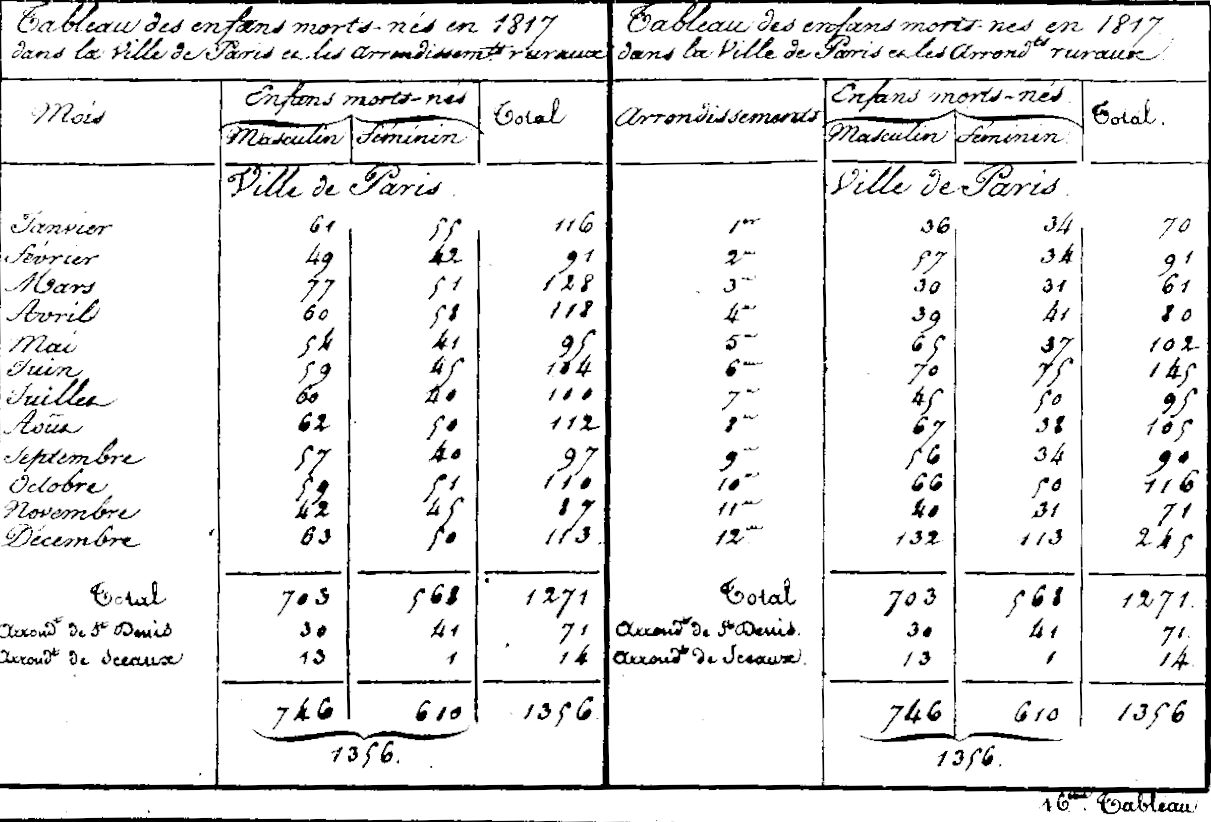 Tableau des enfans morts-nés en 1817
dans la Ville de Paris et les Arrondissemts ruraux
Mois Enfans morts-nés Total
Masculin Féminin
Ville de Paris.
Janvier 61 55 116
Février 49 42 91
Mars 77 51 128
Avril 60 58 118
Mai 54 41 95
Juin 59 45 104
Juillet 60 40 100
Août 62 50 112
Septembre 57 40 97
Octobre 59 51 110
Novembre 42 45 87
Décembre 63 50 113
Total 703 568 1271
Arrondt de St Denis 30 41 71
Arrondt de Sceaux 13 1 14
746 610 1356
1356.
Tableau des enfans morts-nés en 1817
dans la Ville de Paris et les Arrondts ruraux.
Arrondissements Enfans morts-nés. Total.
Masculin Féminin
Ville de Paris.
1er 36 34 70
2me 57 34 91
3me 30 31 61
4me 39 41 80
5me 65 37 102
6me 70 75 145
7me 45 50 95
8me 67 38 105
9me 56 34 90
10me 66 50 116
11me 40 31 71
12me 132 113 245
Total 703 568 1271.
Arrondt de St Denis. 30 41 71.
Arrondt de Sceaux. 13 1 14.
746 610 1356
1356.
16me Tableau